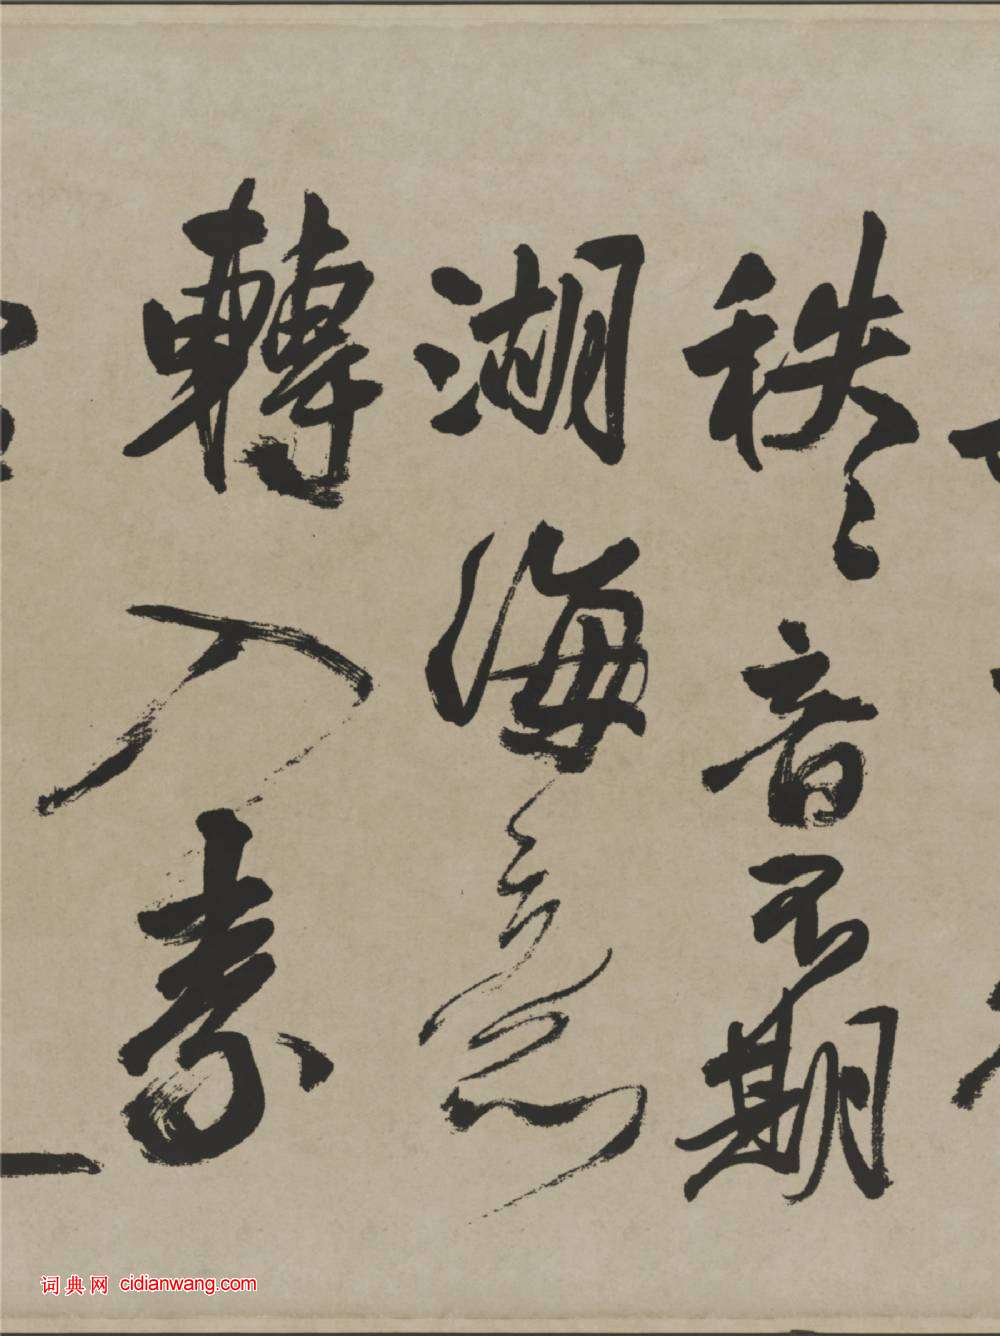 秩〻音不期
湖海意
轉入素
词典网 cidianwang.com